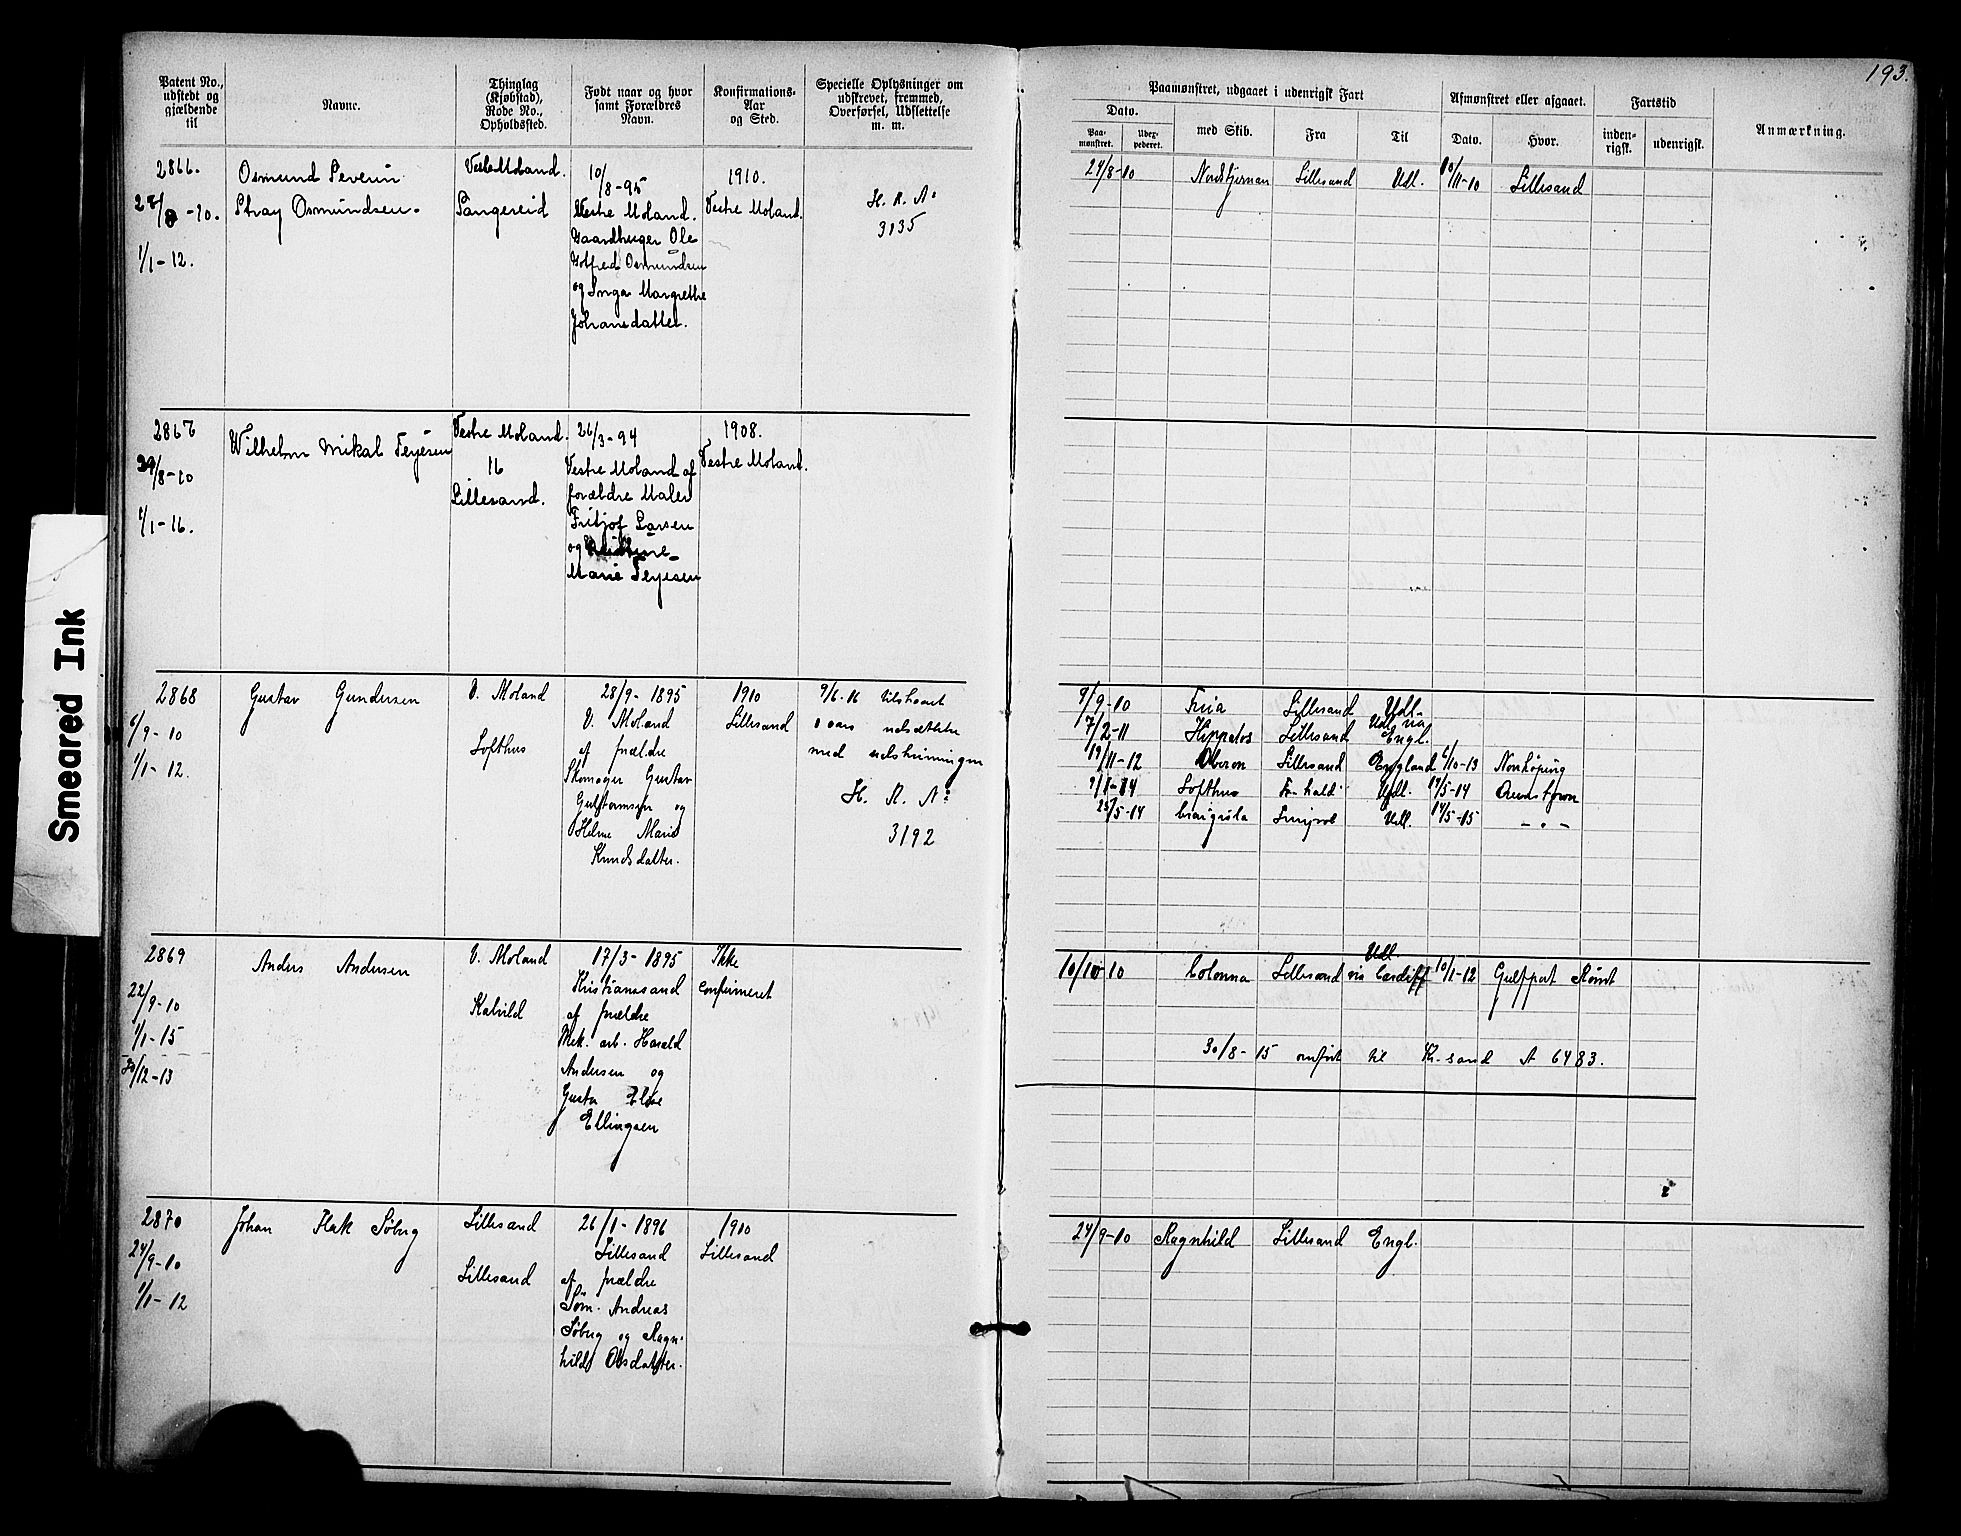 193.
Patent No., udstedt og gjældende til
Navne.
Thinglag (Kjøbstad), Rode No., Opholdssted.
Født naar og hvor samt Forældres Navn.
Konfirmations-Aar og Sted.
Specielle Oplysninger om udskrevet, fremmed, Overførsel, Udslettelse m. m.
Paamønstret, udgaaet i udenrigsk Fart
Dato.
Paa-mønstret.
Udex-pederet.
med Skib.
Fra
Til
Afmønstret eller afgaaet.
Dato.
Hvor.
Fartstid
inden-rigsk.
udenrigsk.
Anmærkning.
2866.
1/1-12.
Osmund Severin
Stray Osmundsen.
Vestre Moland.
Sangereid
10/8-95
Vestre Moland.
Gaardbruger Ole
Osmundsen
og Inga Margrethe
Johansdatter.
1910.
Vestre Moland.
H. R. No
3135
Nordstjernan Lillesand Udl. 10/11-10 Lillesand
2867
29/8-10
1/1-16.
Wilhelm Mikal Terjesen
Vestre Moland.
16
Lillesand.
26/3-94
Vestre Moland af
forældre Maler
Fritjof Larsen
og
Marie Terjesen
1908.
Vestre Moland.
2868
6/9-10
1/1-12.
Gustav Gundersen
V. Moland
Lofthus
28/9-1895
V. Moland
af forældre
Skomager Gustav
og
Helene Marie
Knudsdatter.
1910
Lillesand
9/6-16 tilstaaet
aars udsættelse
med udskrivningen
H. R. No
3192
9/9-10 Lillesand Udl.
7/2-11 Hippalos Lillesand Udl. via Engl.
19/11-12 Oberon Lillesand England 6/10-13 Norrköping
Lofthus Udl. 19/5-14
25/5-14 Udl. 14/5-15 - " -
2869
22/9-10
1/1-15
30/12-13
Anders Andersen
V. Moland
Kalvild
17/3-1895
Kristianssand
af forældre
Mek. arb. Harald
Andersen og
Gusta Elise
Ellingsen
Ikke
confirmeret
10/10 10 Colonna Lillesand Udl. via Cardiff 10/1-12 Gulfport Rømt
30/8-15 omført til Kr.sand A 6483.
2870
24/9-10
1/1-12
Johan Flak Søberg
Lillesand
Lillesand
26/1-1896
Lillesand
af forældre
Søm. Andreas
Søberg og Ragn-
hild Olsdatter.
1910
Lillesand
24/9-10 Ragnhild Lillesand Engl.
Smeared Ink